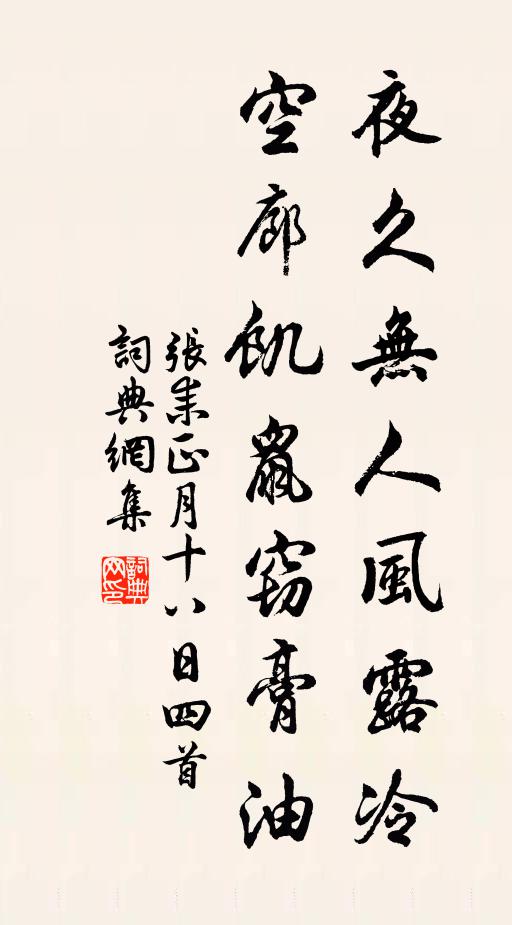 夜久無人風露冷
空廊飢鼠窃膏油
張耒正月十八日四首
詞典網集
詞典网印